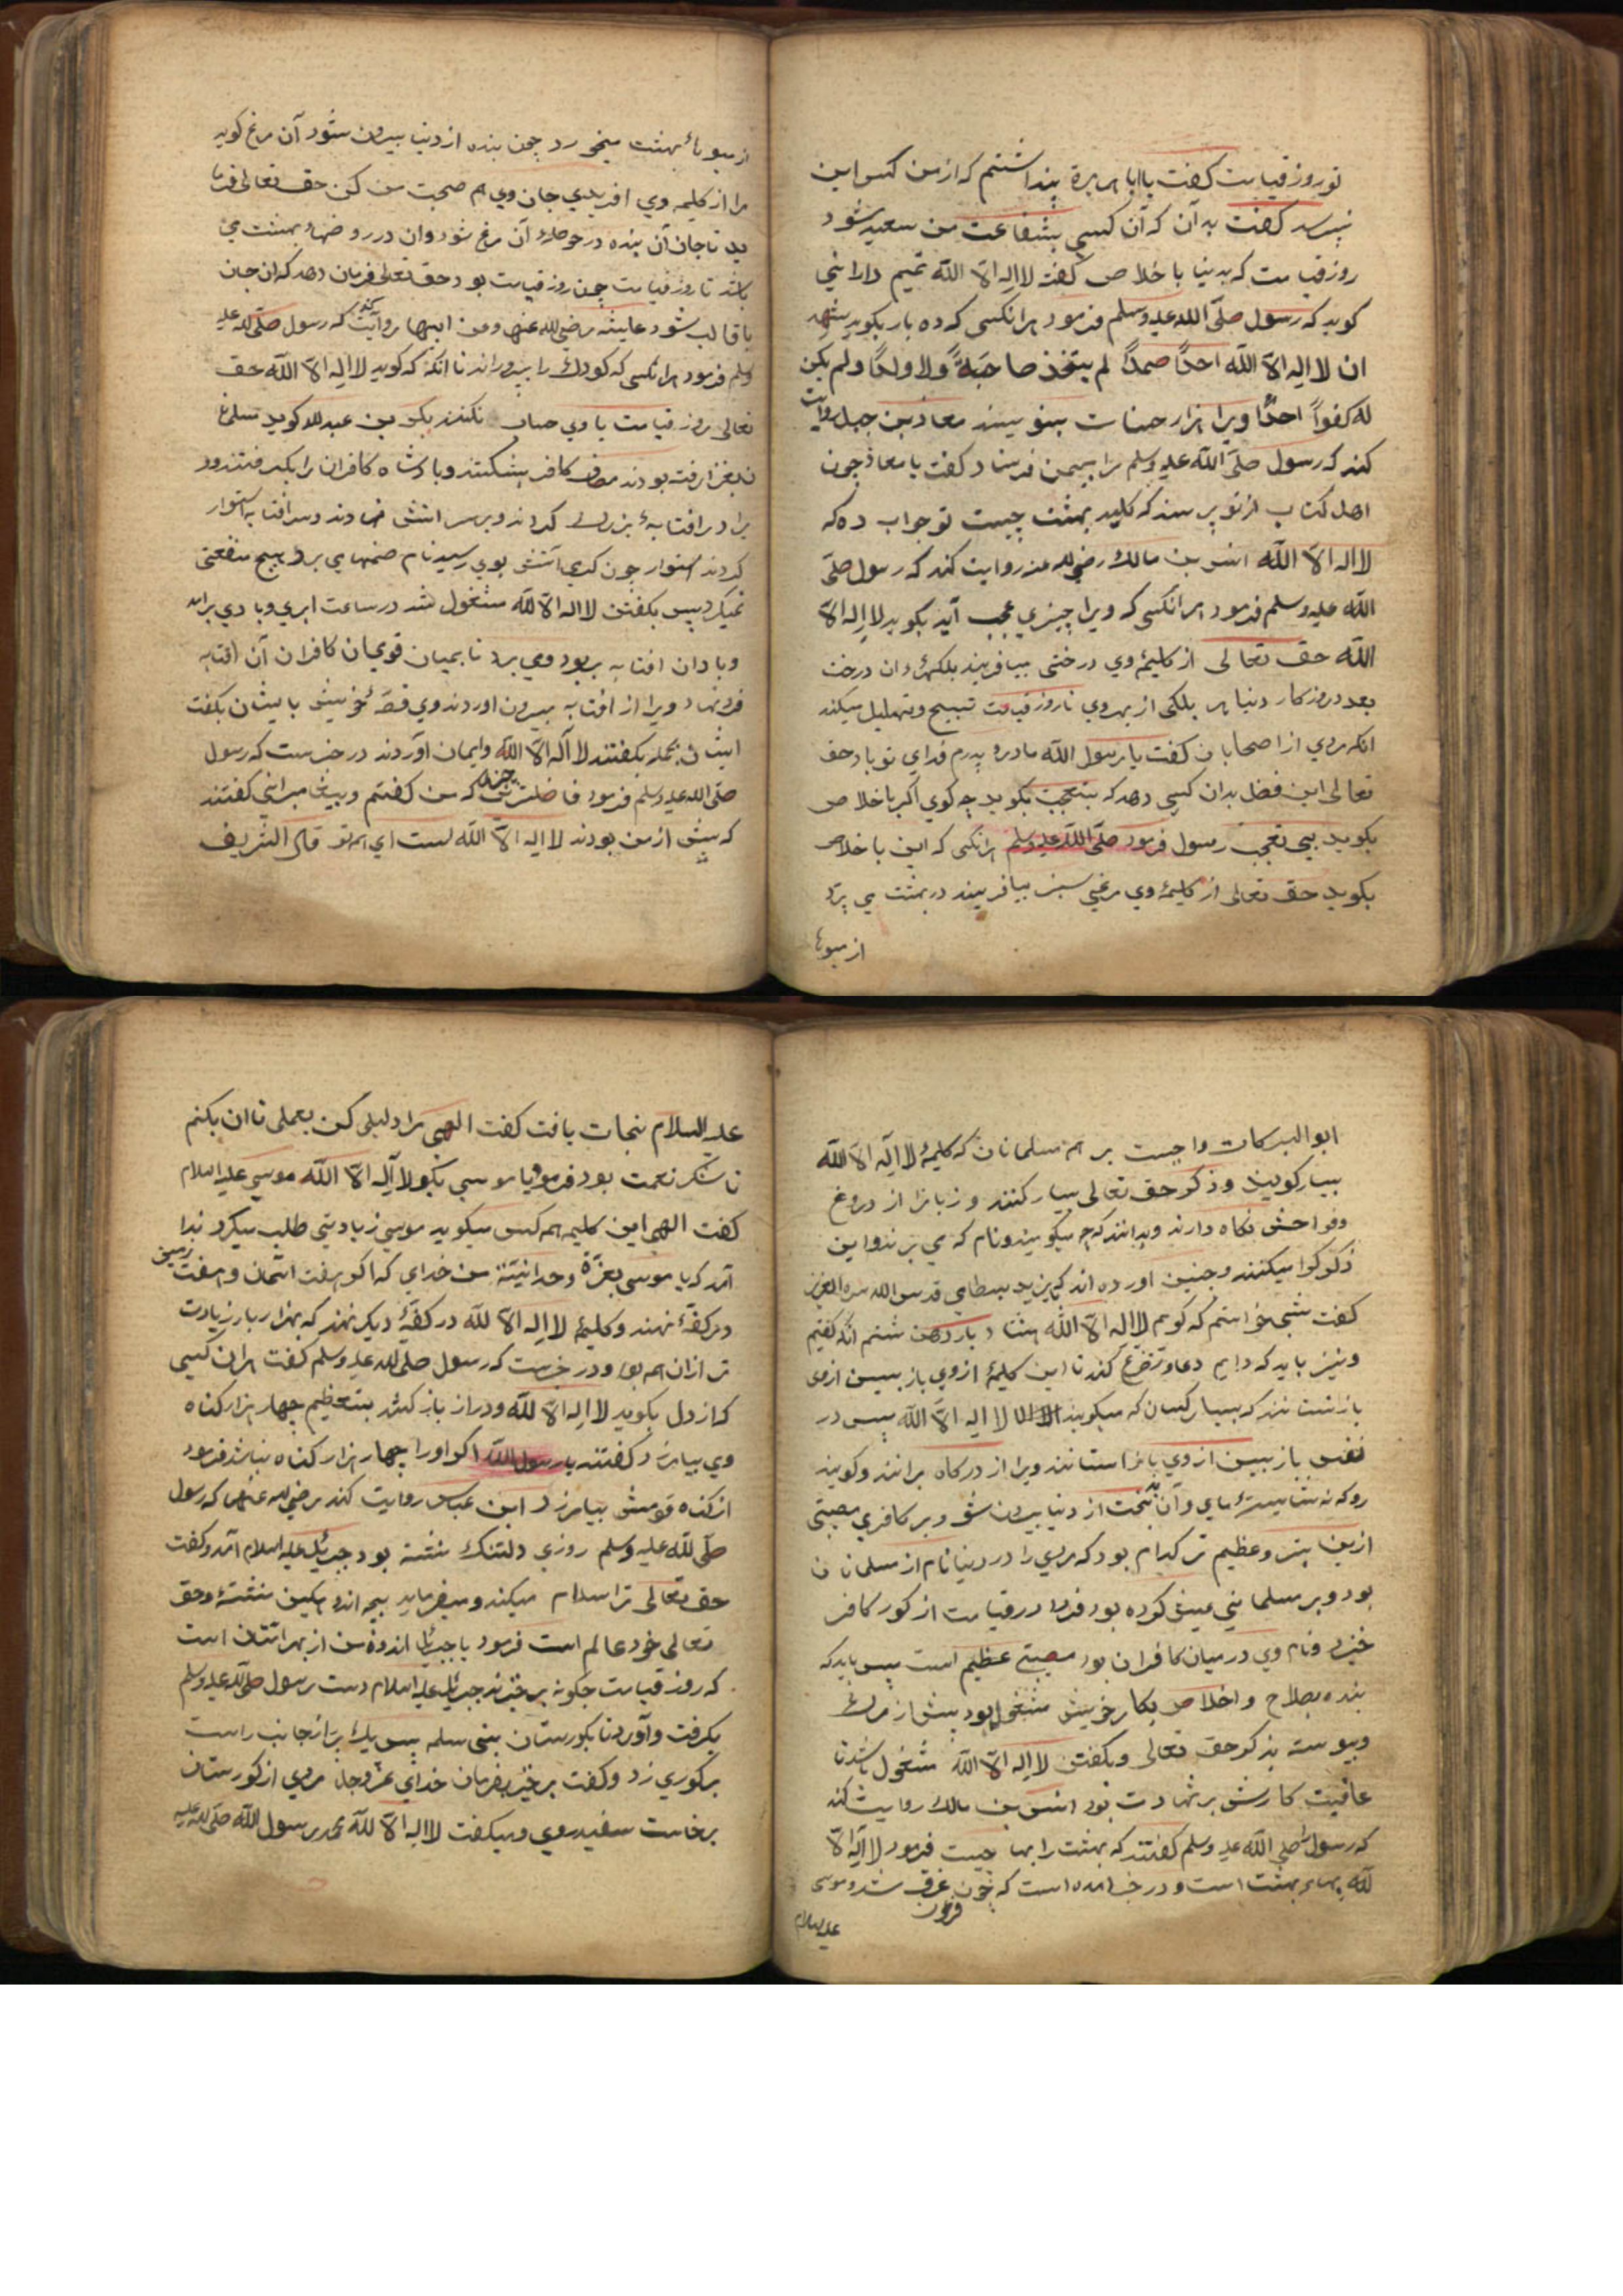 تو روز قیامت کفت یا ابا هریرة پنداشتم که از من کس این
نپرسد کفت بدآن که آن کسی بشفاعت من سعید شود
روز قیامت که بدنیا باخلاص کفت لا اله الا الله تمیم دارانی
کوید که رسول صلی الله علیه وسلم فرمود هرانکسی که ده بار بکوید
ان لا اله الا الله احدًا صمدًا لم یتخذ صاحبةً ولا ولدًا ولم یکن
له کفواً احدًا ویرا هزار حسنات بنویسند معاذ بن جبل روایت
کند که رسول صلی الله علیه وسلم مرا بیمن فرستاد کفت یا معاذ چون
اهل کتاب از تو پرسند که کلید بهشت چیست تو جواب ده که
لا اله الا الله انس بن مالک رضی الله عنه روایت کند که رسول صلی
الله علیه وسلم فرمود هرانکسی که ویرا چیزی عجب آید بکوید لا اله الا
الله حق تعالی از کلیمۀ وی درختی بیافریند بلکهاء ان درخت
بعدد روزکار دنیا هر بلکی از بهر وی تا روز قیامت تسبیح وتهلیل میکند
انکه مردی از اصحابان کفت یا رسول الله مادر و پدرم فدای تو باد حق
تعالی این فضل بدان کسی دهد که بتعجب بکوید چه کوی اکر باخلاص
بکوید بی تعجب رسول فرمود صلی الله علیه وسلم هرانکسی که این باخلاص
بکوید حق تعالی از کلیمۀ وی مرغی سبز بیافریند در بهشت می پرد
از میوها
از میوهاء بهشت میخورد چون بنده از دنیا بیرون شود آن مرغ کوید
مرا از کلیمه وی افریدی جان وی هم صحبت من کن حق تعالی فرما
ید تا جان آن بنده در حوصلۀ آن مرغ شود وان در روضهاء بهشت می
باشد تا روز قیامت چون روز قیامت بود حق تعالی فرمان دهد که ان جان
با قالب شود عایشه رضی الله عنها وعن ابیها روایت کند که رسول صلی الله علیه
وسلم فرمود هرانکسی که کودک را بپروراند تا انکه که کوید لا اله الا الله حق
تعالی روز قیامت با وی حساب نکند بکر بن عبدالله کوید مسلما
ن بغزا رفته بودند مصاف کافر بشکستند وپادشاه کافران را بکرفتند ود
یرا در افتابۀ بزرک کردند وبر سر اتش نهادند وسر افتابه استوار
کردند استوار چون کرمی آتش بوی رسید نام صنمها می برد هیچ منفعتی
نمیکرد پس بکفتن لا اله الا الله مشغول شد در ساعت ابری وبادی برامد
وبادان افتابه بربود ومی برد تا بمیان قومی ان کافران آن افتابه
فرونهاد ویرا از افتابه بیرون اوردند وی قصۀ خویش با یشان بکفت
ایشان بجمله بکفتند لا اله الا الله وایمان آوردند در خبرست که رسول
صلی الله علیه وسلم فرمود فاضلترین چیزی که من کفتم وپیغامبرانی کفتند
که پیش از من بودند لا اله الا الله است ای هم تو قال الشریف
ابو البرکات واجبست بر هم مسلمانان که کلیمۀ لا اله الا الله
بسیار کویند وذکر حق تعالی بسیار کنند وزبانرا از دروغ
وفواحش نکاه دارند وبدانند که چه میکویند ونام که می برند واین
ذکر کرا میکنند وچنین اورده اند که بایزید بسطامی قدس الله سره العزیز
کفت شبی خواستم که کویم لا اله الا الله هشتاد بار دهن شستم انکه کفتم
ونیز باید که دایم دعا وتضرع کند تا این کلیمۀ از وی باز پسین از وی
باز نستانند که بسیار کسان که میکویند لا اله الا الله پس در
نفس باز پسین از وی باز استانند ویرا از درکاه برانند وکویند
رو که نه شایستۀ مای وآن بدبخت از دنیا بیرون شود بر کافری مصیبتی
ازین بتر وعظیم تر کدام بود که مردی را در دنیا نام از مسلمانان
بود وبر مسلمانی عیش کرده بود فردا در قیامت از کور کافر
خیزد ونام وی در میان کافران بود مصیبتی عظیم است پس باید که
بنده بصلاح واخلاص بکار خویش مشغول بود پیش از مرک
وپیوسته بذکر حق تعالی وبکفتن لا اله الا الله مشغول باشد تا
عاقبت کارش بر شهادت بود انس بن مالک روایت کند
که رسول را صلی الله علیه وسلم کفتند که بهشت را بها چیست فرمود لا اله الا
الله بهاء بهشت است ودر خبر امده است که چون فرعون غرق شد وموسی
علیه السلام
علیه السلام نجات یافت کفت الهی مرا دلیلی کن بعملی تا ان بکنم
تا شکر نعمت بود فرمود یا موسی بکو لا اله الا الله موسی علیه السلام
کفت الهی این کلیمه هم کس میکوید موسی زیادتی طلب میکرد ندا
آمد که یا موسی بعزة وحدانیته من خدای که اکر هفت اسمان وهفت زمین
در کفۀ نهند وکلیمۀ لا اله الا الله در کفۀ دیکر نهند که بهزار بار زیادت
تر از ان هم بود ودر خبرست که رسول صلی الله علیه وسلم کفت هران کسی
که از دل بکوید لا اله الا الله ودراز باز کشد بتعظیم چهار هزار کناه
وی بیامرزد کفتند یا رسول الله اکر اورا چهار هزار کناه نباشد فرمود
از کناه قومش بیامرزد ابن عباس روایت کند رضی الله عنهما که رسول
صلی الله علیه وسلم روزی دلتنک نشسته بود جبریل علیه السلام آمد وکفت
حق تعالی ترا سلام میکند ومیفرماید بچه اندوهکین نشستۀ وحق
تعالی خود عالم است فرمود یا جبریل اندوه من از بهر امتان است
که روز قیامت چکونه برخیزند جبریل علیه السلام دست رسول صلی الله علیه وسلم
بکرفت وآورد تا بکورستان بنی سلمه پس یک پر از جانب راست
بر کوری زد وکفت برخیز بفرمان خدای عز وجل مردی از کورستان
برخاست سفید روی ومیکفت لا اله الا الله محمد رسول الله صلی الله علیه